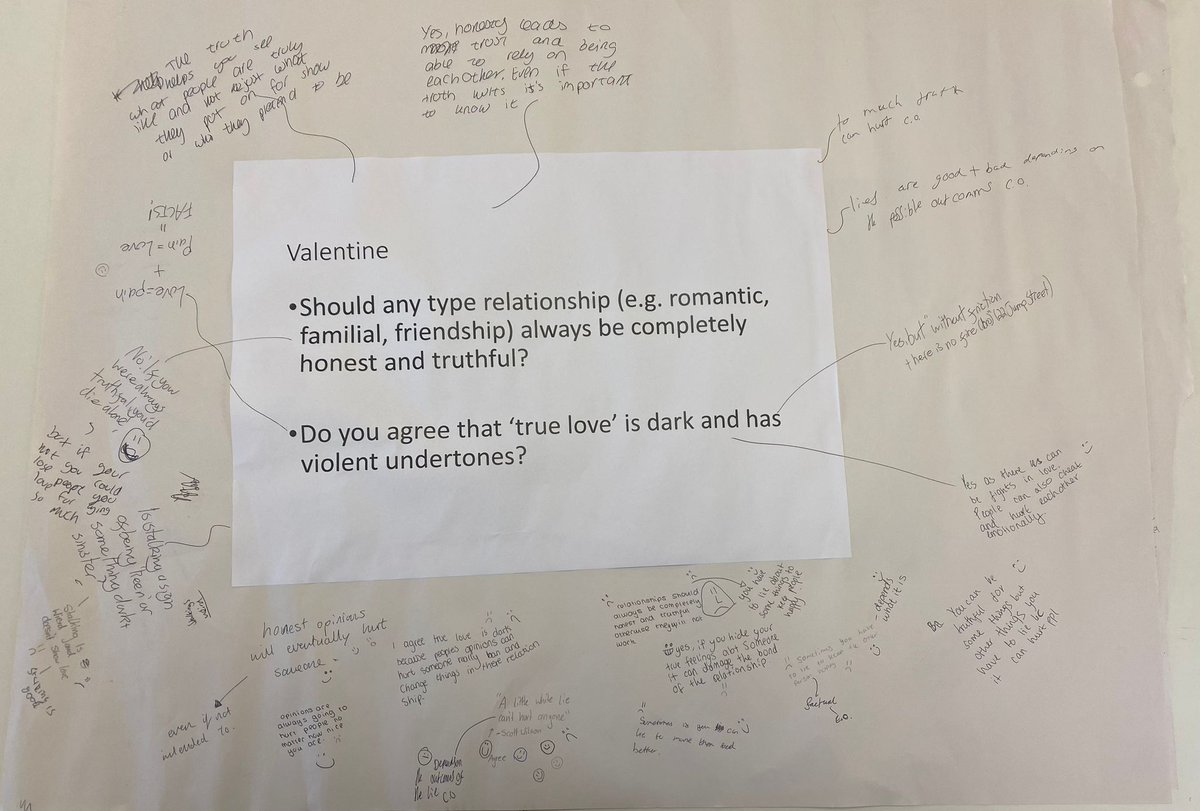 The truth
helps you see
what people are truly
like and not just what
they put on for show
or who they pretend to be
Yes, honesty leads to
trust and
able to rely on being
eachother. Even if the
truth hurts it's important
to know it
to much truth
can hurt c.o.
lies are good + bad depending on
the possible outcomms c.o.
FACTS!
"
Pain = Love
+
Love = pain
Valentine
•Should any type relationship (e.g. romantic,
familial, friendship) always be completely
honest and truthful?
•Do you agree that ‘true love’ is dark and has
violent undertones?
Yes, but "without friction
there is no fire (bro)" (22 Jump Street)
No! If you
were always
truthful you'd
die alone
but if your
not you could
lose people you
love for
so much
Is stalking a sign
of being keen or
something darker
sinister
Yes as there can
be fights in love.
People can also cheat
and hurt eachother
emotionally.
You can be
truthful for
some things but
other things you
have to lie bc
it can hurt ppl
honest opinions
will eventually hurt
someone
even if not
intended to.
I agree true love is dark
because peoples opinions can
hurt someone really bad and
change things in there relation
ship.
relationships should
always be completely
honest and truthful
otherwise they will not
work
you have
to lie about
some things to
keep people
happy
depends
what it is
yes, if you hide your
true feelings abt someone
it can damage the bond
of the relationship
Sometimes you have
to lie to keep the other
person happy
factual
c.o.
opinions are
always going to
hurt people no
matter how nice
you are.
"A little white lie
can't hurt anyone"
- Scott Wilson
Agree
Depends on
the outcome of
the lie CO
Sometimes is you can
lie to make them feel
better.